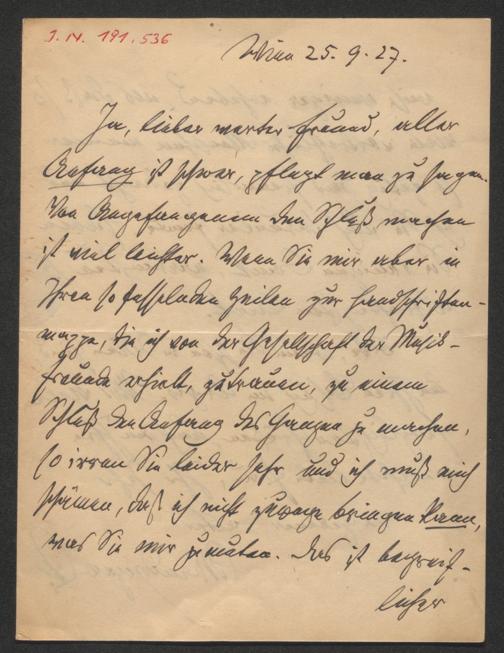 I. N. 191.536
Wien 25. 9. 27.
Ja, lieber werter Freund, aller
Anfang ist schwer, pflegt man zu sagen.
Von Angefangenem den Schluß machen
ist viel leichter. Wenn Sie mir aber in
Ihren so fesselnden Zeilen zur Handschriften-
mappe, die ich von der Gesellschaft der Musik-
freunde erhielt, zutrauen, zu einem
Schluß den Anfang des Ganzen zu machen,
so irren Sie leider sehr und ich muß mich
schämen, daß ich nicht zuwege bringen kann,
was Sie mir zumuten. Das ist begreif-
licher